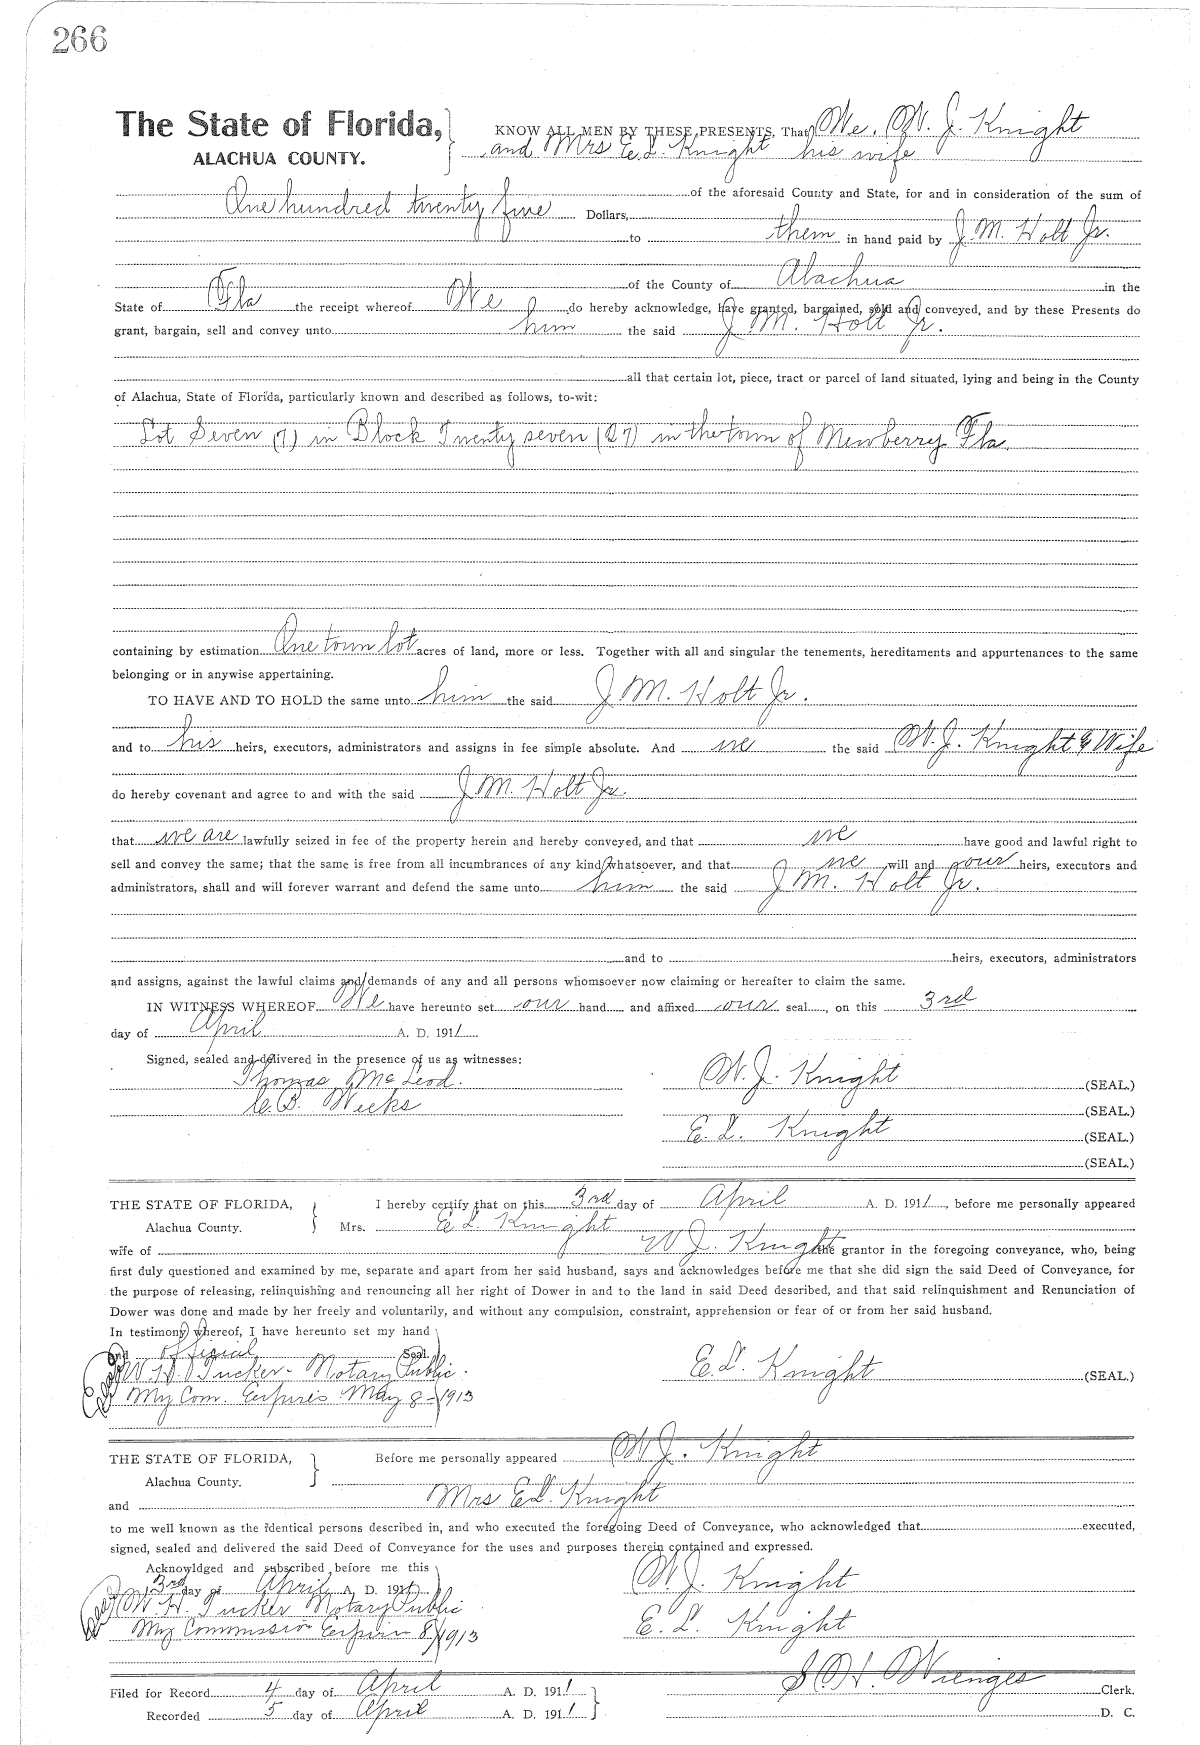 266
The State of Florida, KNOW ALL MEN BY THESE PRESENTS, That We, W. J. Knight
ALACHUA COUNTY. and Mrs E. L. Knight his wife
of the aforesaid County and State, for and in consideration of the sum of
One hundred twenty five Dollars,
to them in hand paid by J. M. Holt Jr.
of the County of Alachua in the
State of Fla the receipt whereof We do hereby acknowledge, have granted, bargained, sold and conveyed, and by these Presents do
grant, bargain, sell and convey unto him the said J. M. Holt Jr.
all that certain lot, piece, tract or parcel of land situated, lying and being in the County
of Alachua, State of Florida, particularly known and described as follows, to-wit:
Lot Seven (7) in Block Twenty seven (27) in the town of Newberry Fla.
containing by estimation One town lot acres of land, more or less. Together with all and singular the tenements, hereditaments and appurtenances to the same
belonging or in anywise appertaining.
TO HAVE AND TO HOLD the same unto him the said J. M. Holt Jr.
and to his heirs, executors, administrators and assigns in fee simple absolute. And we the said W. J. Knight & Wife
do hereby covenant and agree to and with the said J. M. Holt Jr.
that we are lawfully seized in fee of the property herein and hereby conveyed, and that we have good and lawful right to
sell and convey the same; that the same is free from all incumbrances of any kind whatsoever, and that we will and our heirs, executors and
administrators, shall and will forever warrant and defend the same unto him the said J. M. Holt Jr.
and to heirs, executors, administrators
and assigns, against the lawful claims and demands of any and all persons whomsoever now claiming or hereafter to claim the same.
IN WITNESS WHEREOF We have hereunto set our hand and affixed our seal, on this 3rd
day of April A. D. 1911
Signed, sealed and delivered in the presence of us as witnesses:
Thomas McLeod. W. J. Knight (SEAL.)
C. B. Weeks (SEAL.)
E. L. Knight (SEAL.)
(SEAL.)
THE STATE OF FLORIDA, I hereby certify that on this 3rd day of April A. D. 1911, before me personally appeared
Alachua County. Mrs. E L Knight
wife of W J. Knight the grantor in the foregoing conveyance, who, being
first duly questioned and examined by me, separate and apart from her said husband, says and acknowledges before me that she did sign the said Deed of Conveyance, for
the purpose of releasing, relinquishing and renouncing all her right of Dower in and to the land in said Deed described, and that said relinquishment and Renunciation of
Dower was done and made by her freely and voluntarily, and without any compulsion, constraint, apprehension or fear of or from her said husband.
In testimony whereof, I have hereunto set my hand
and official Seal.
W. H. Tucker - Notary Public. E. L. Knight (SEAL.)
My Com. Expires May 8 - 1913
THE STATE OF FLORIDA, Before me personally appeared W. J. Knight
Alachua County.
and Mrs E L. Knight
to me well known as the identical persons described in, and who executed the foregoing Deed of Conveyance, who acknowledged that executed,
signed, sealed and delivered the said Deed of Conveyance for the uses and purposes therein contained and expressed.
Acknowldged and subscribed before me this
3rd day of April A. D. 1911 W. J. Knight
W. H. Tucker Notary Public
My Commission 8, 1913 E. L. Knight
Filed for Record 4 day of April A. D. 1911 S. H. Wienges Clerk.
Recorded 5 day of April A. D. 1911 D. C.